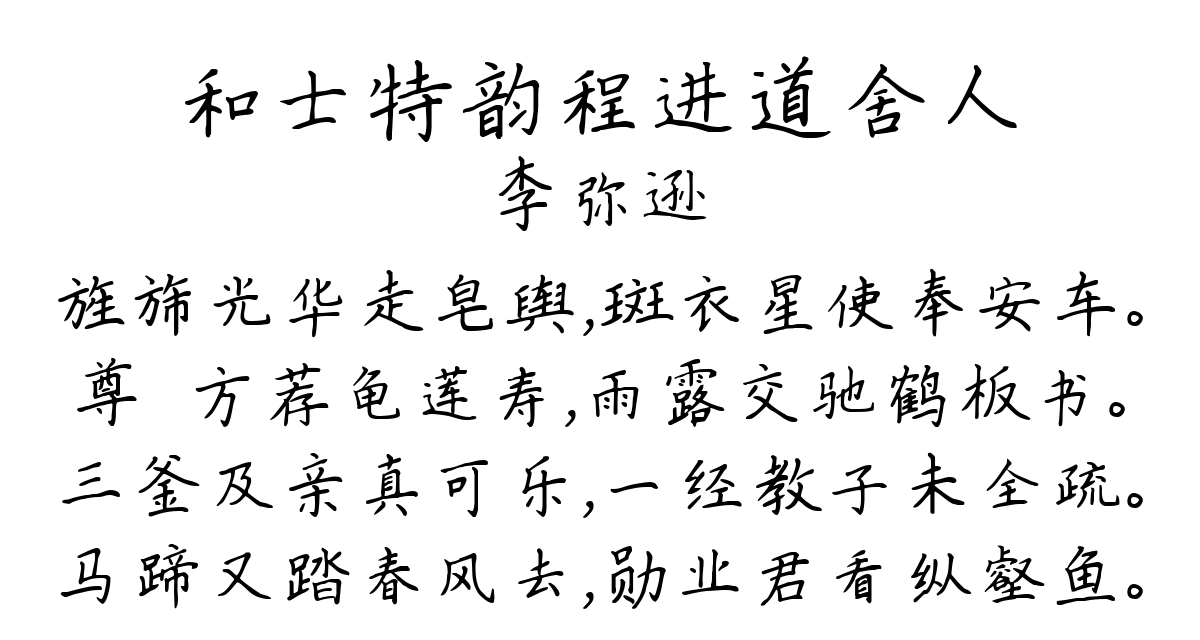 和士特韵程进道舍人
李弥逊
旌旆光华走皂舆,斑衣星使奉安车。
尊 方荐龟莲寿,雨露交驰鹤板书。
三釜及亲真可乐,一经教子未全疏。
马蹄又踏春风去,勋业君看纵壑鱼。